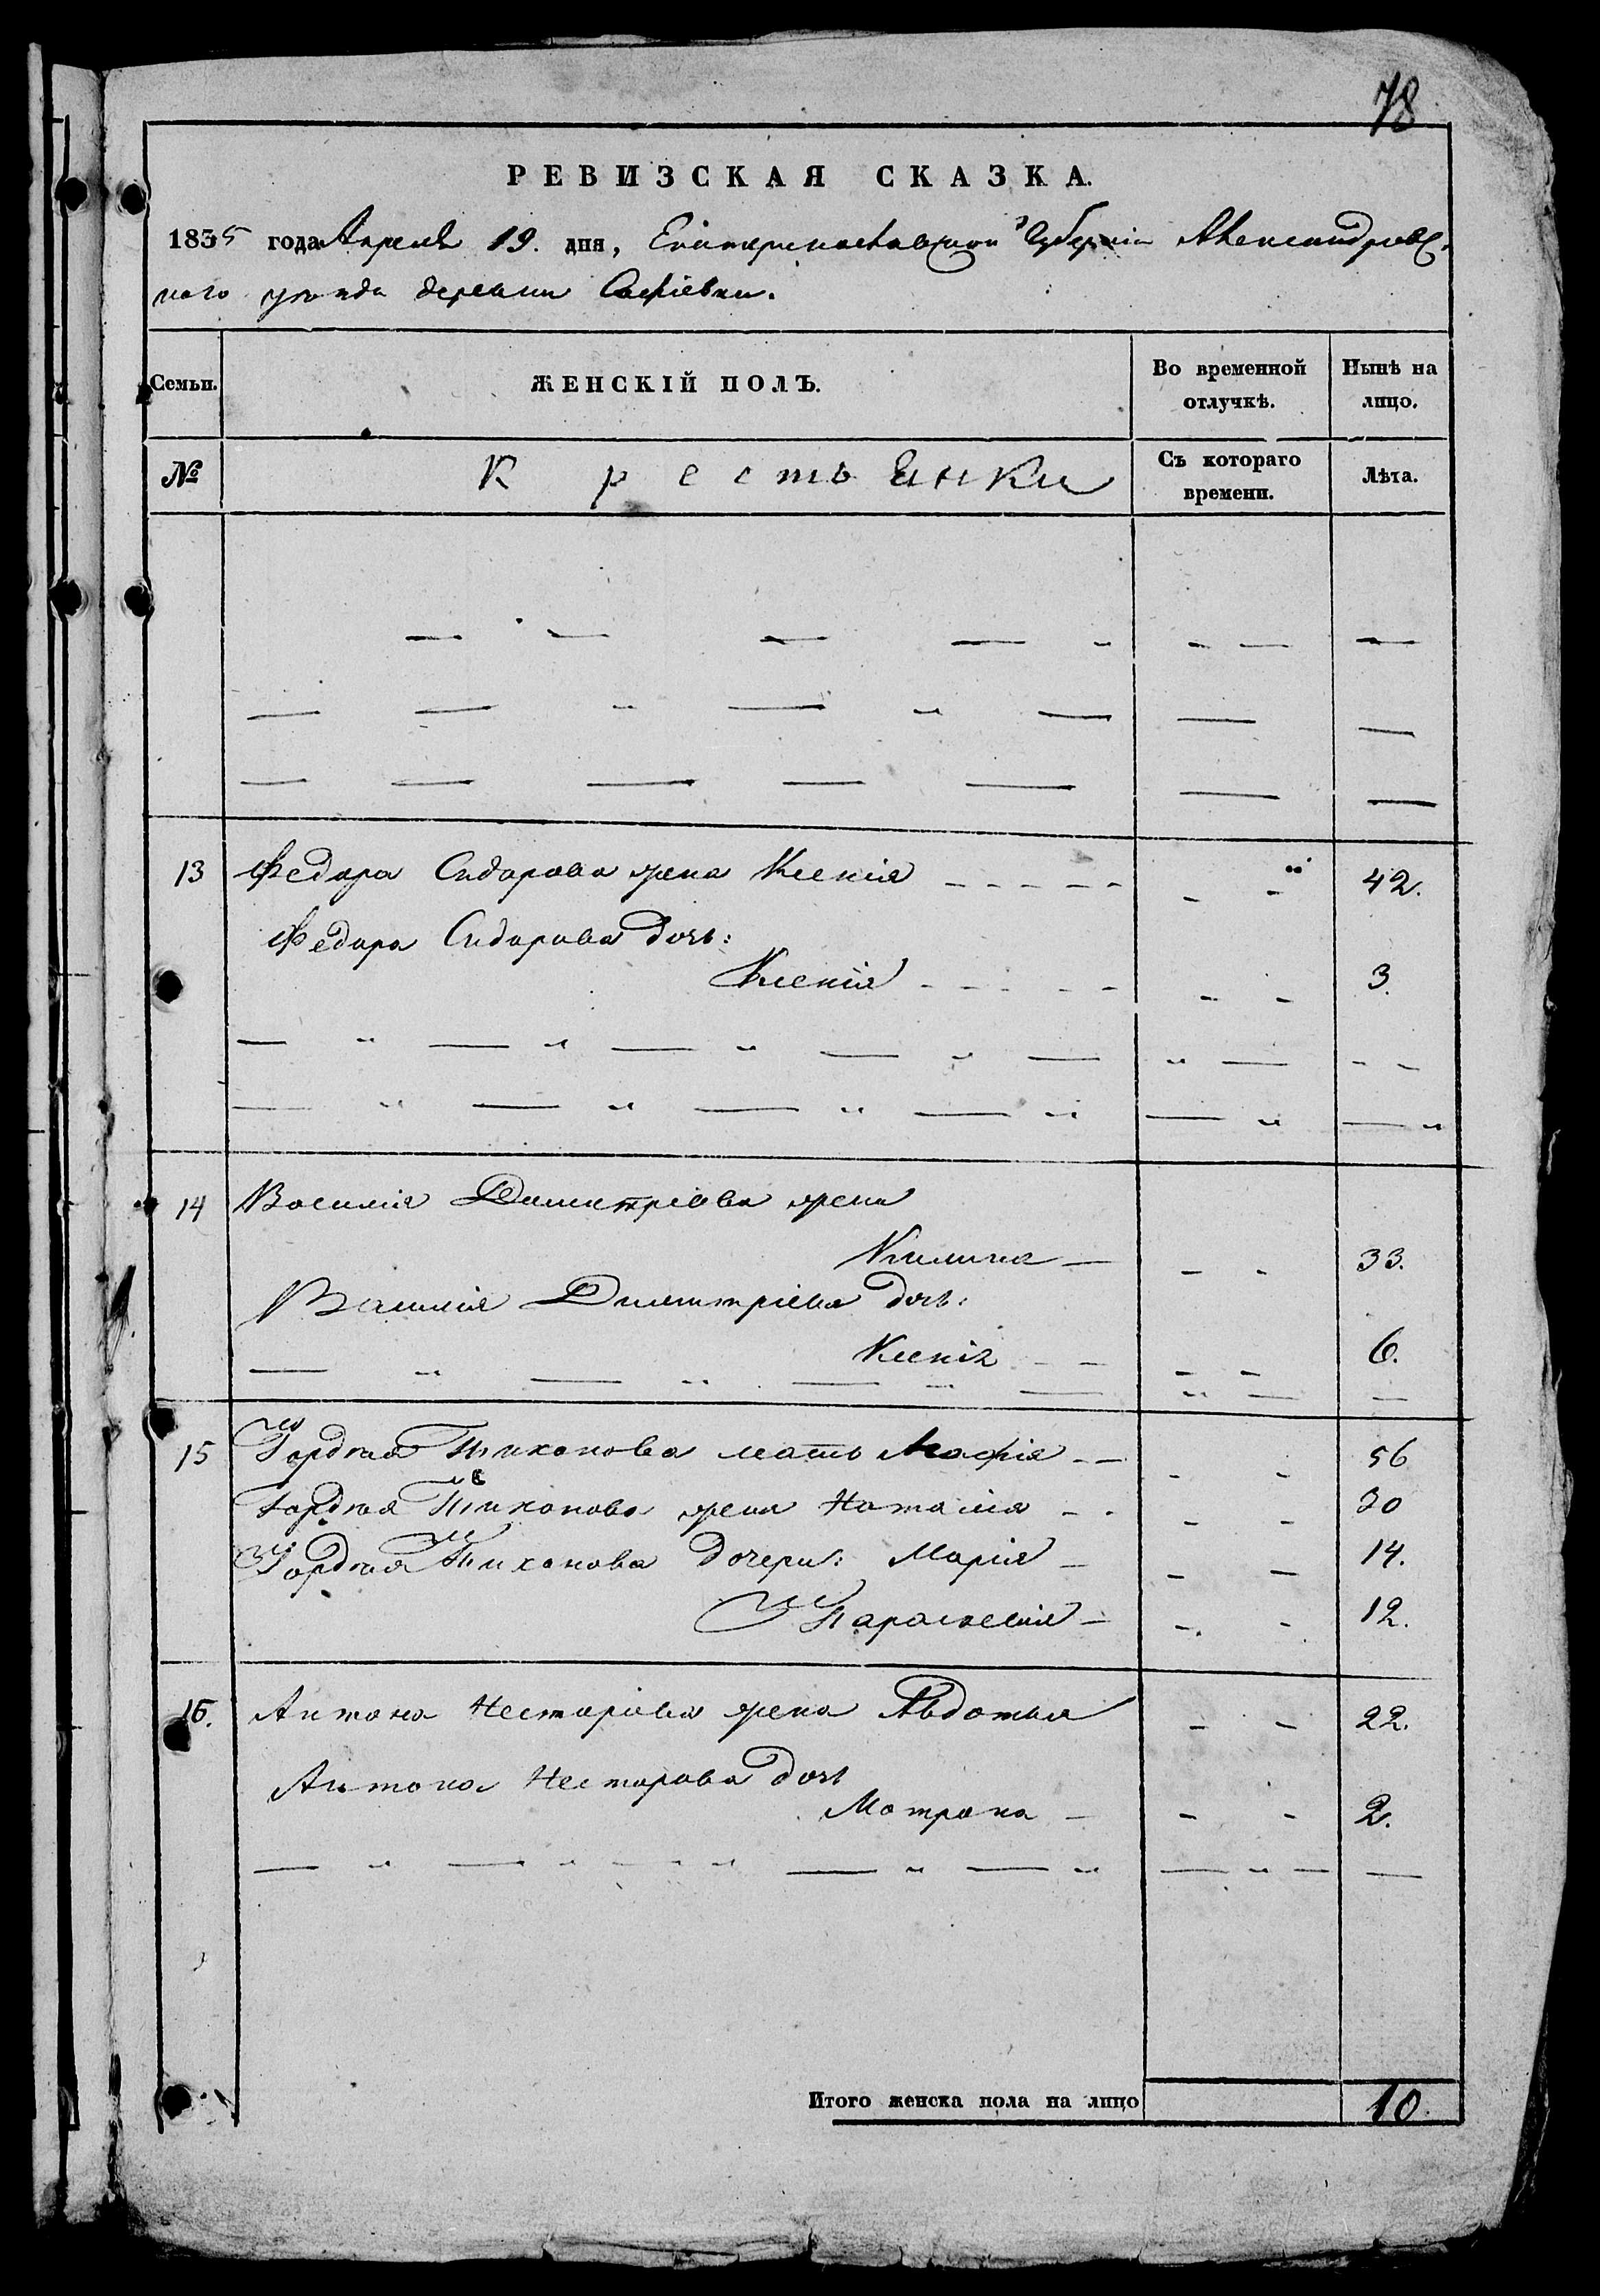 78
РЕВИЗСКАЯ СКАЗКА.
1835 года Апреля 19. дня, Екатеринославской Губерніи Александровс-
каго уезда деревни Софіевки.
Семьи. ЖЕНСКІЙ ПОЛЪ. Во временной отлучкѣ. Нынѣ на лицо.
№ Крестьянки Съ котораго времени. Лѣта.
13 Федора Сидорова жена Ксенія 42.
Федора Сидорова дочь:
Ксенія 3.
14 Василія Димитріева жена
Килина 33.
Василія Димитріева дочь:
Ксенія 6.
15 Гордѣя Тихонова мать 56
Гордѣя Тихонова жена Наталія 30
Гордѣя Тихонова дочери: Марія 14.
Параскевія 12.
16. Антона Нестерова жена Авдотья 22.
Антона Нестерова дочь
Матрона 2.
Итого женска пола на лицо 10.